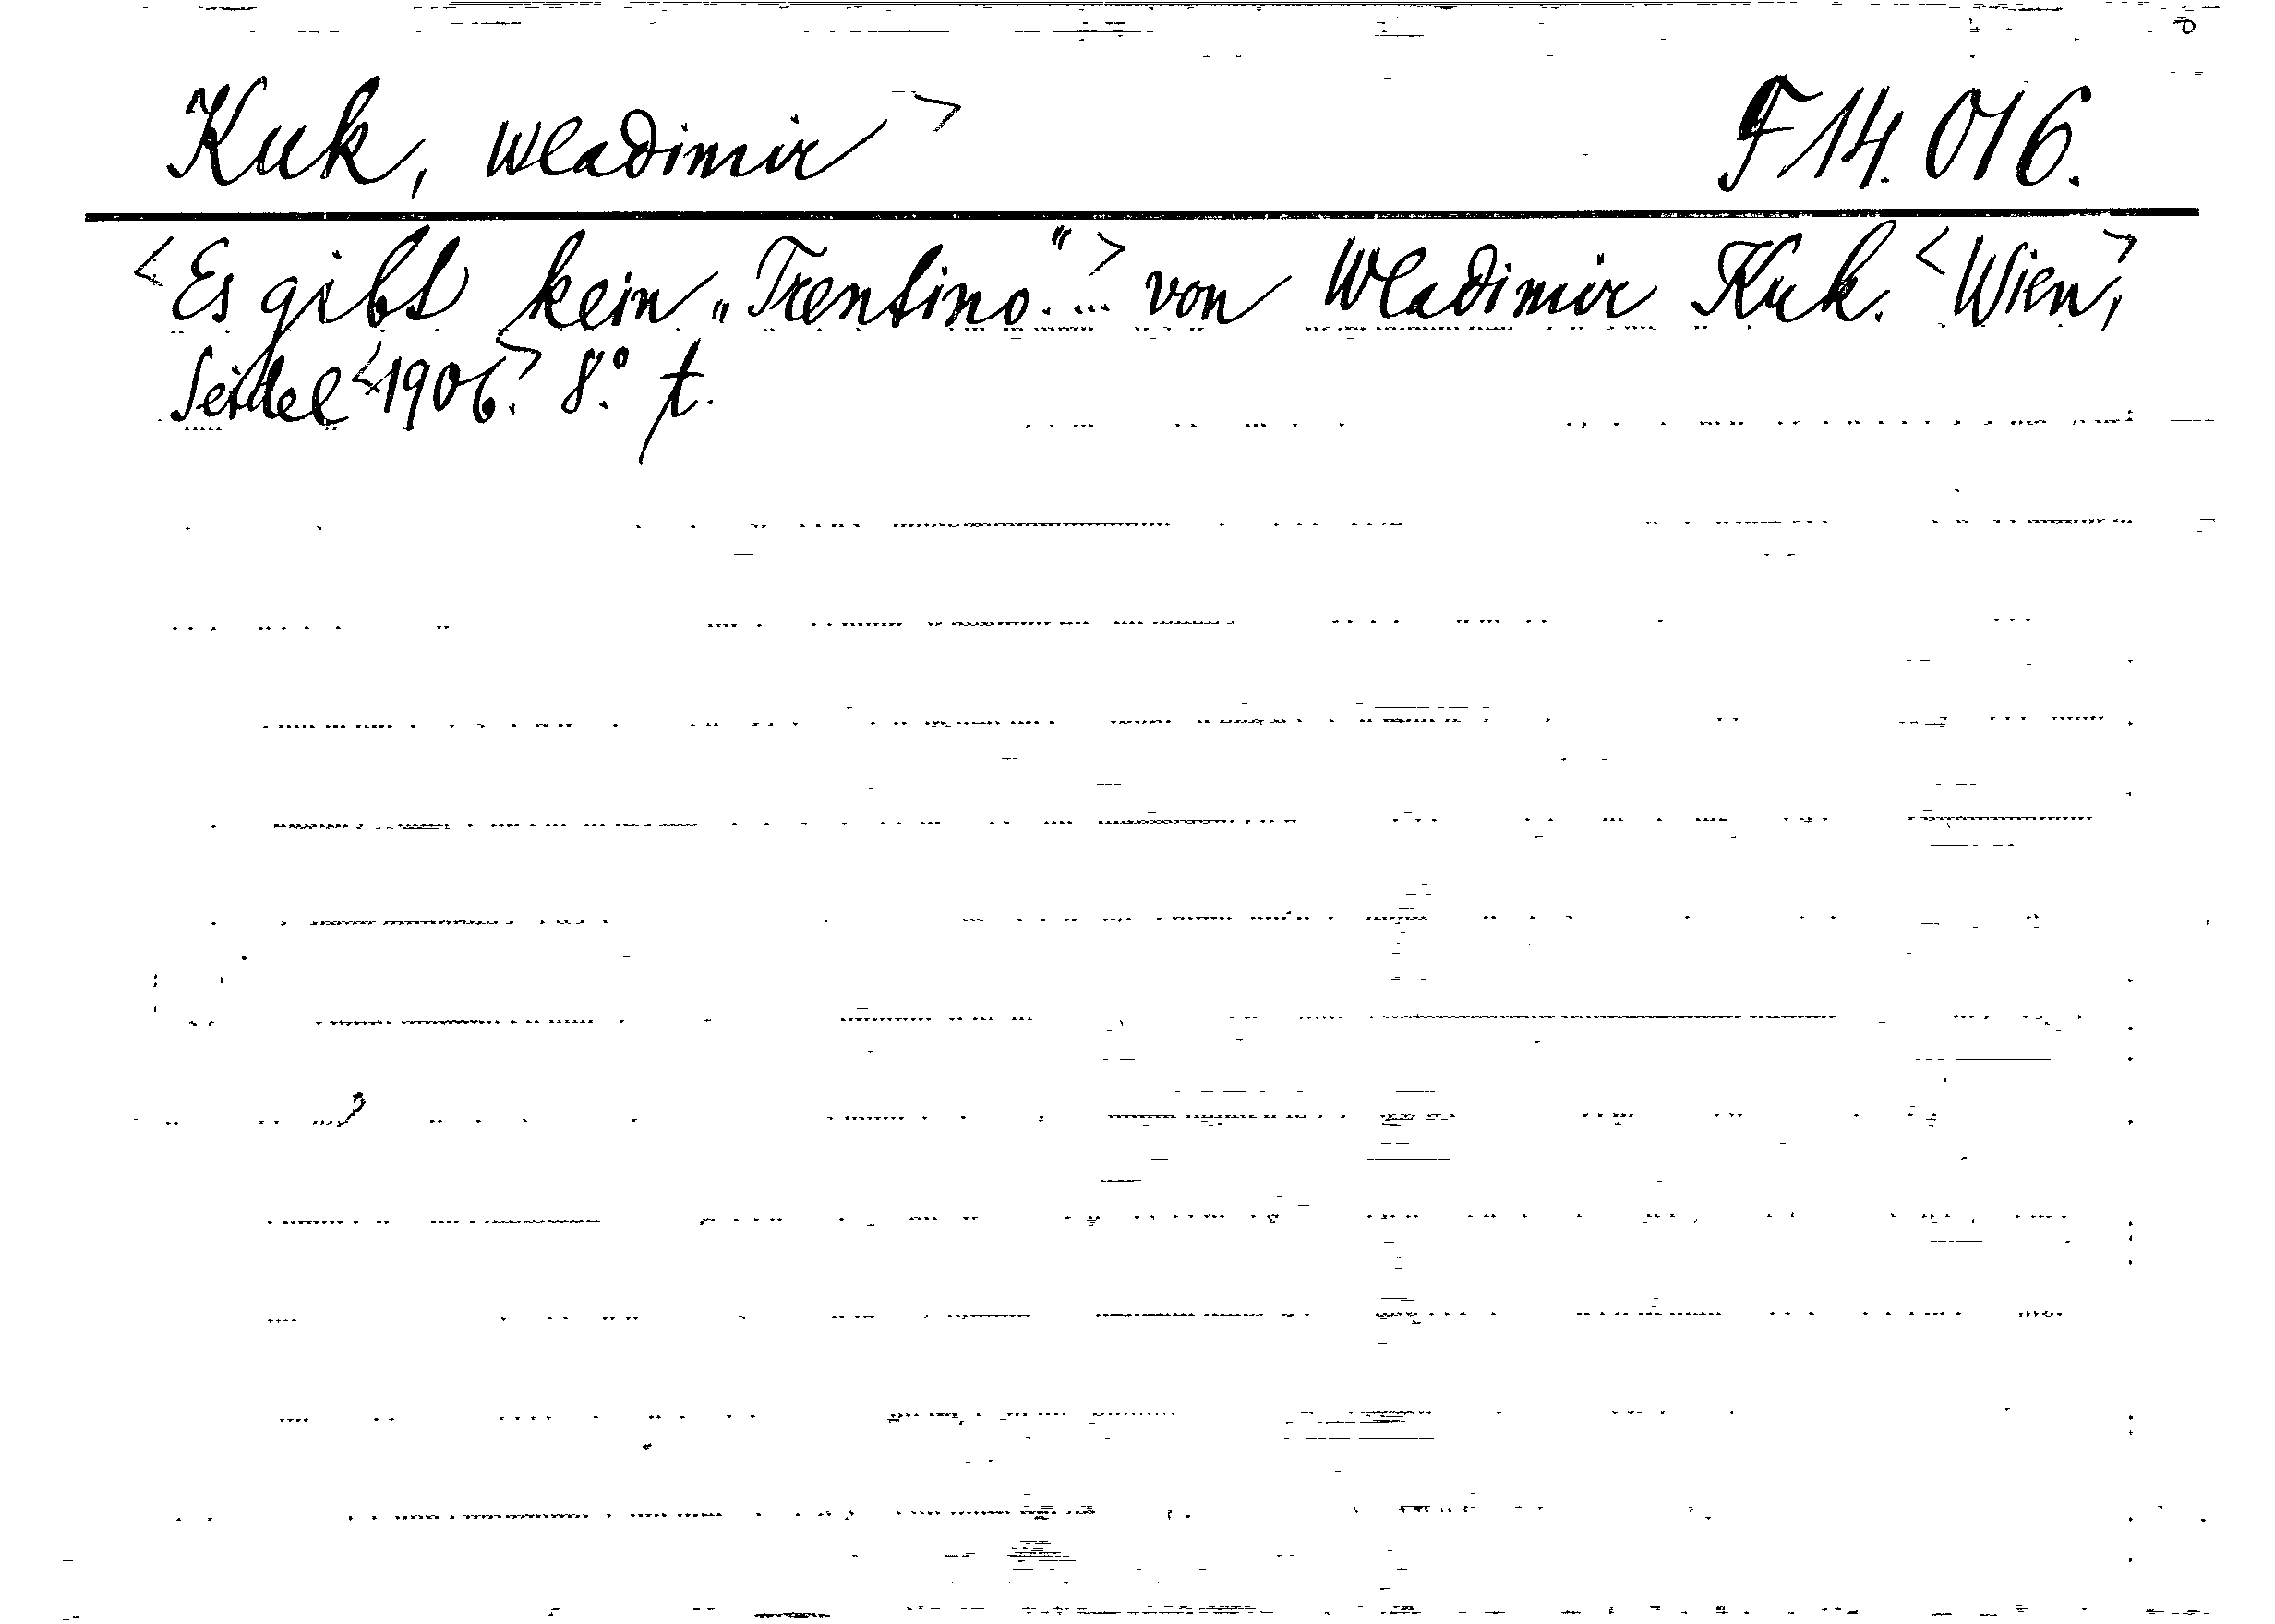 Kuk, Wladimir > F 14.016.
<Es gibt kein „Trentino."...> von Wladimir Kuk. <Wien,>
Seidel <1906.> 8.° t.